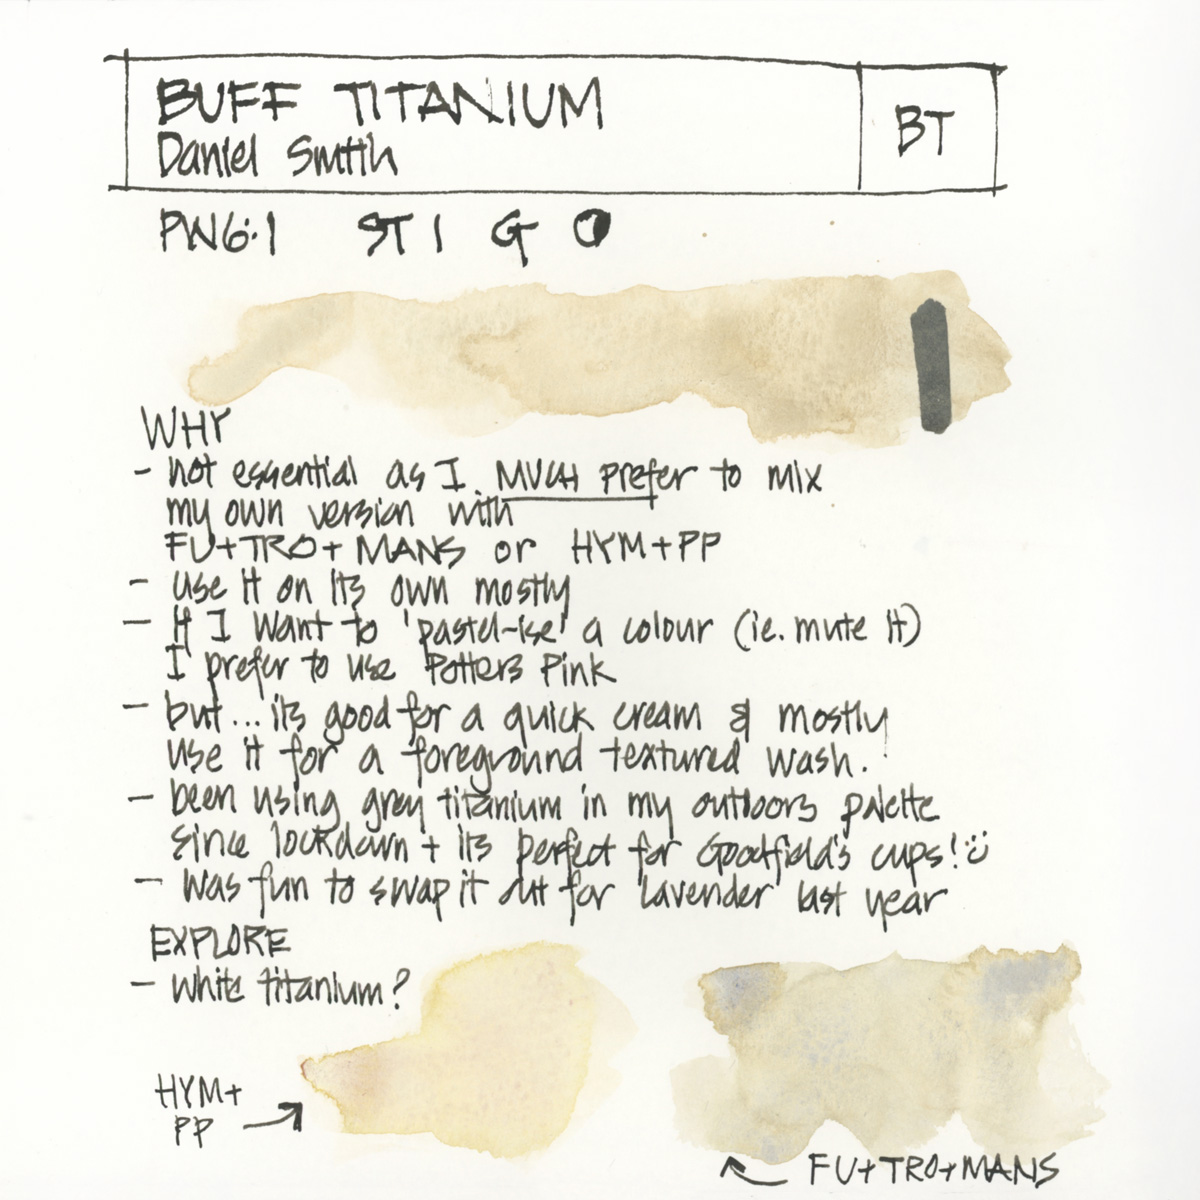 BUFF TITANIUM
Daniel Smith
BT
PW6:1 ST 1 G
WHY
- not essential as I MUCH prefer to mix
my own version with
FU+TRO+MANS or HYM+PP
- use it on its own mostly
- If I want to 'pastel-ise' a colour (ie. mute it)
I prefer to use Potters Pink
- but... its good for a quick cream & mostly
use it for a foreground textured wash.
- been using grey titanium in my outdoors palette
since lockdown + its perfect for Goodfield's cups!
- Was fun to swap it out for 'Lavender' last year
EXPLORE
- White titanium?
HYM+
PP
FU+TRO+MANS